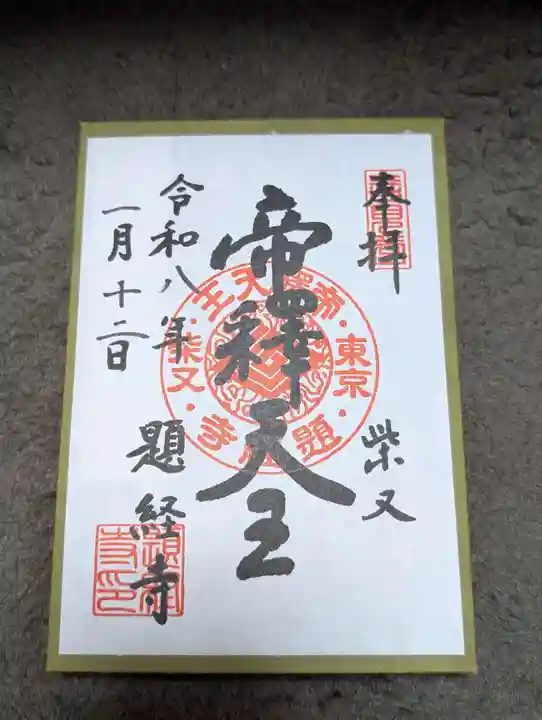 奉拝
柴又
帝釋天王
令和八年
一月十二日
題経寺
東京
柴又
帝釋天王
題経寺
題経
寺印